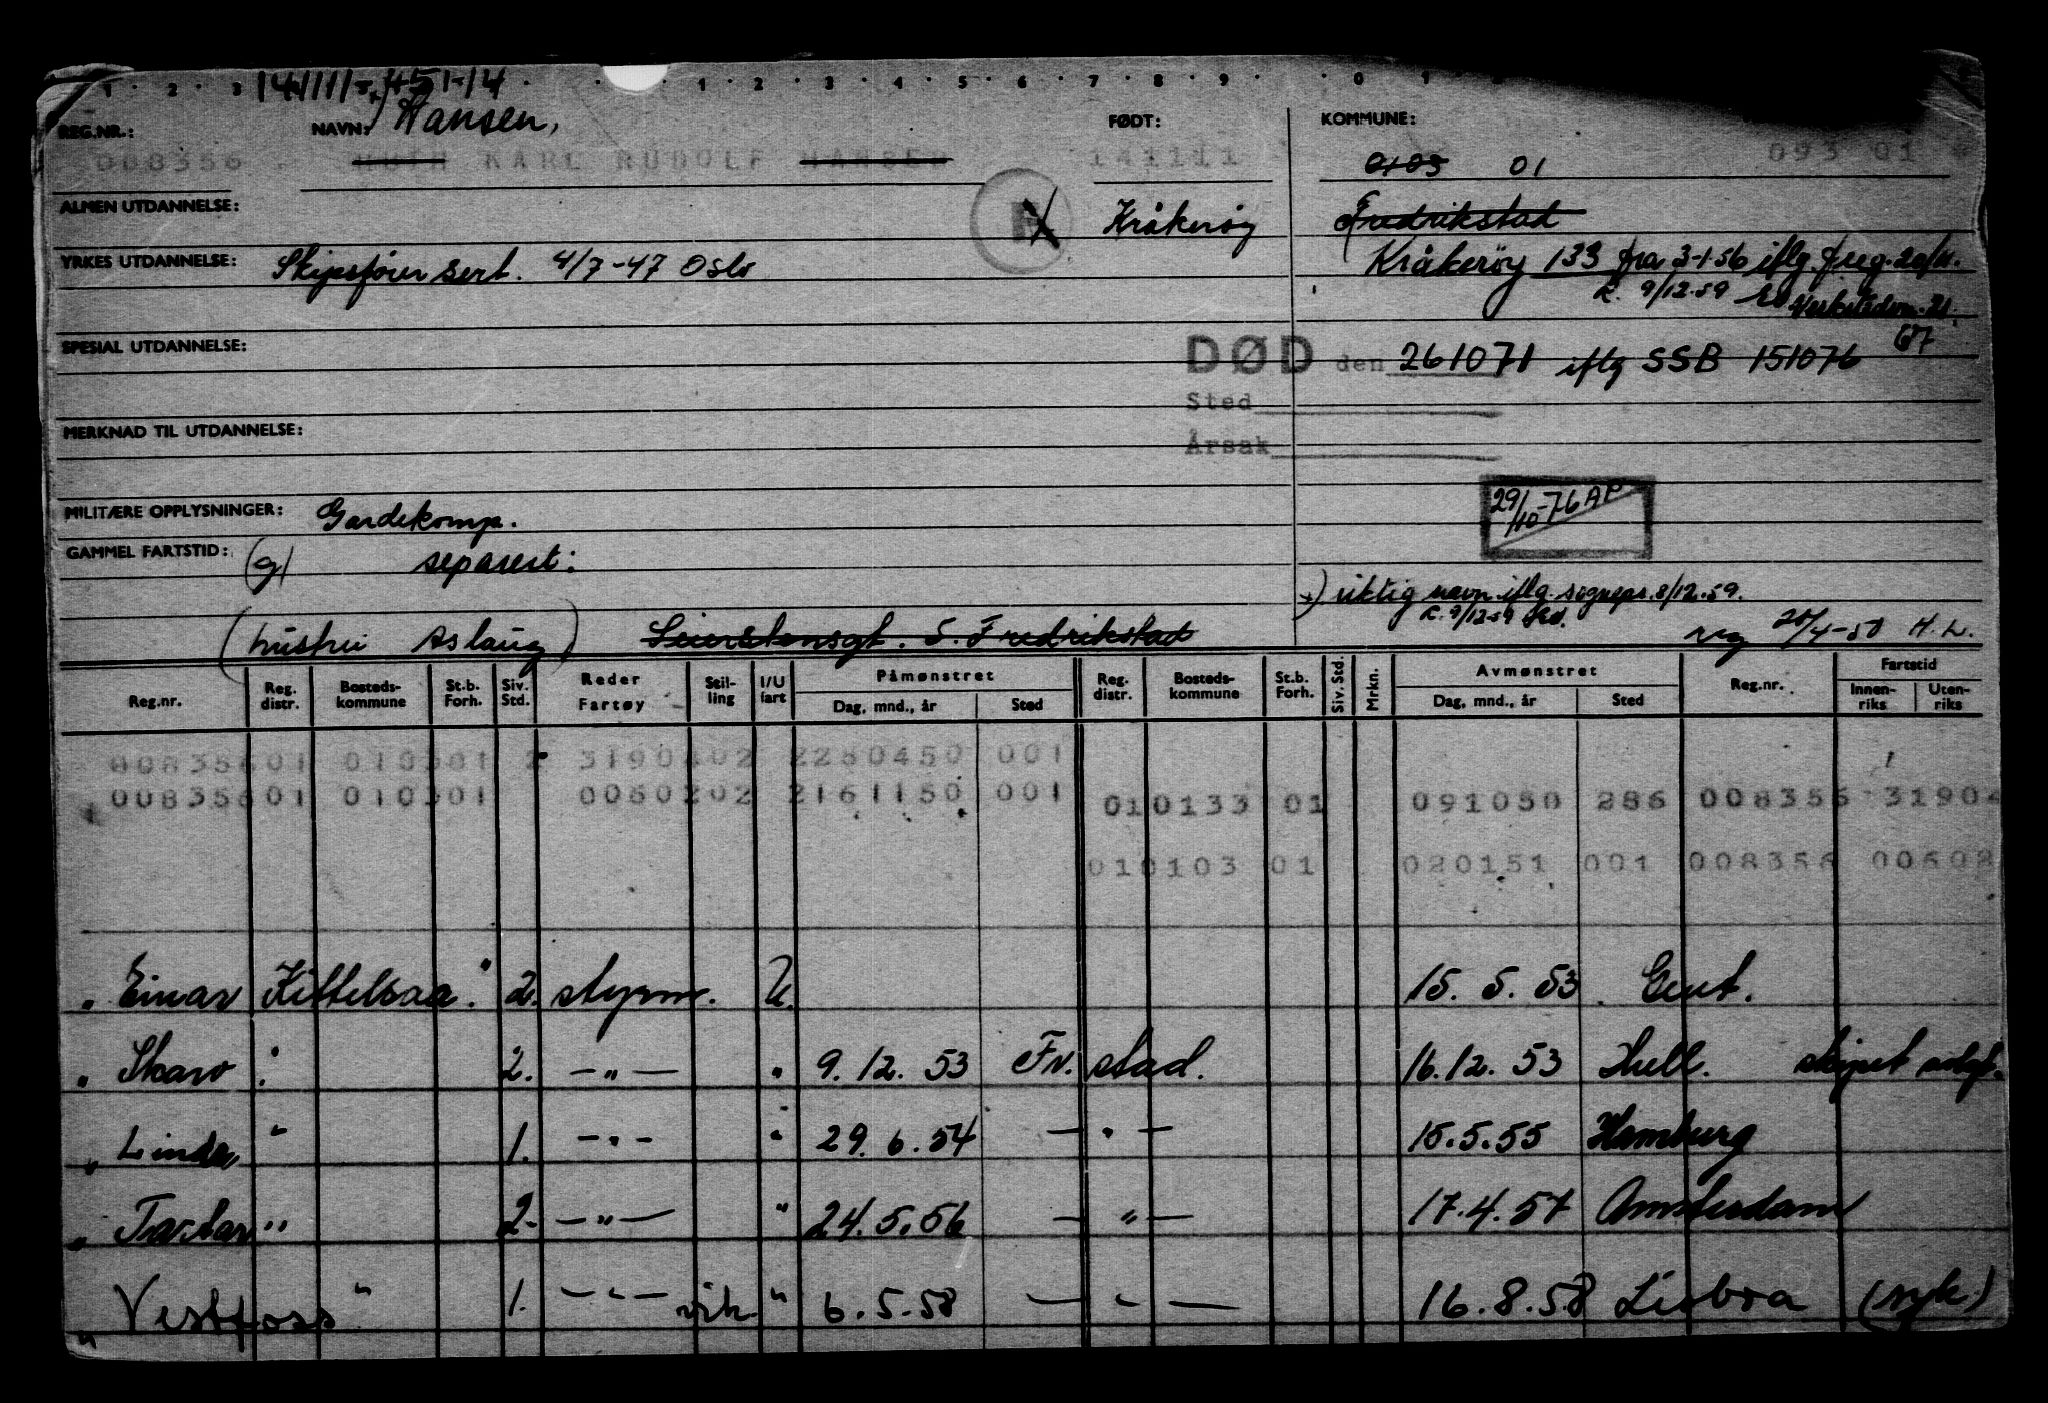 141111-45114
REG.NR.: NAVN: x) Hansen, FØDT: KOMMUNE:
008356 RUTH KARL RUDOLF HANSEN 141111 0103 01 093 01
ALMEN UTDANNELSE: Kråkerøy Fredrikstad
YRKES UTDANNELSE: Skipsfører sert. 4/7-47 Oslo Kråkerøy 133 fra 3-1-56 iflg. freg. 20/11.
R. 9/12-59
SPESIAL UTDANNELSE: DØD den 261071 iflg SSB 151076
Sted
Årsak
MERKNAD TIL UTDANNELSE:
MILITÆRE OPPLYSNINGER: Gardekomp. 29/10-76 AP
GAMMEL FARTSTID: (g) separert:
x) riktig navn iflg. sognepr. 8/12-59.
R. 9/12-59
(hustru Aslaug) S. Fredrikstad reg 20/4-50 H.L.
Reg.nr. Reg. distr. Bosteds-kommune St.b. Forh. Siv. Std. Reder Fartøy Stil-ling I/U fart Påmønstret Dag, mnd., år Sted Reg. distr. Bosteds-kommune St.b. Forh. Siv. Std. Mrkn. Avmønstret Dag, mnd., år Sted Reg.nr. Fartstid Innen-riks Uten-riks
00835601 010301 2 3190202 2280450 001
00835601 010301 0060202 2161150 001 010133 01 091050 286 008356 31902
010103 01 020151 001 008356 00602
" Einar Kittelsaa." 2. styrm. U. 15. 5. 53 Gent.
" Skaro " 2. -"- " 9. 12. 53 Fr. stad. 16. 12. 53 Hull. skipet solgt.
" Linda " 1. -"- " 29. 6. 54 -"- 15. 5. 55 Hamburg
" Tartar " 2. -"- " 24. 5. 56 -"- 17. 4. 57 Amsterdam
" Vestfoss " 1. -"- vik " 6. 5. 58 -"- 16. 8. 58 Lisboa (syk)